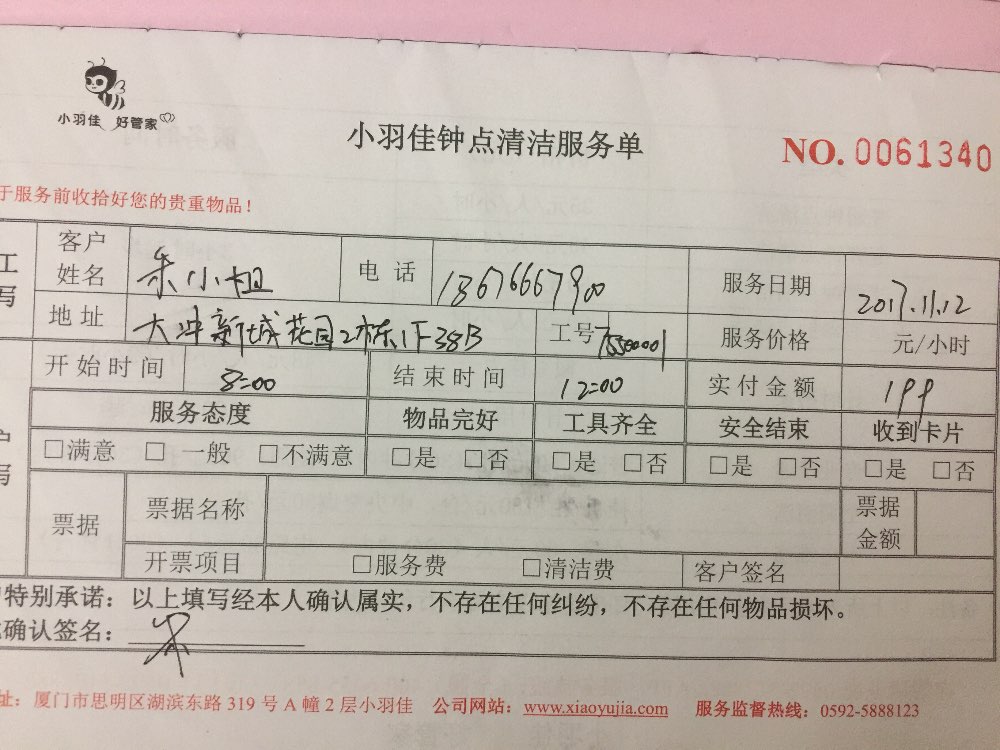 小羽佳 好管家
小羽佳钟点清洁服务单
NO. 0061340
于服务前收拾好您的贵重物品!
工 客户姓名 朱小姐 电话 13676667900 服务日期 2017.11.12
写 地址 大冲新城花园2栋1F38B 工号 7550001 服务价格 元/小时
开始时间 8:00 结束时间 12:00 实付金额 199
服务态度 物品完好 工具齐全 安全结束 收到卡片
户 □满意 □ 一般 □不满意 □是 □否 □是 □否 □是 □否 □是 □否
写 票据 票据名称 票据金额
开票项目 □服务费 □清洁费 客户签名
特别承诺:以上填写经本人确认属实,不存在任何纠纷,不存在任何物品损坏。
确认签名: 朱
址:厦门市思明区湖滨东路 319 号 A 幢 2 层小羽佳 公司网站:www.xiaoyujia.com 服务监督热线:0592-5888123